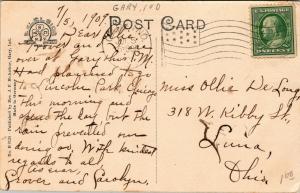 GARY, IND
POST CARD
7/5, 1909
Dear Ollie:
Grover and I are
over at Gary this P.M.
Had planned to go
to Lincoln Park, Chicago
this morning and
spend the day, but the
rain prevented our
doing so. With kindest
regards to all
as ever,
Grover and Carolyn.
Miss Ollie De Long,
318 N. Kibby St,
Lima,
Ohio.
ONE CENT
100